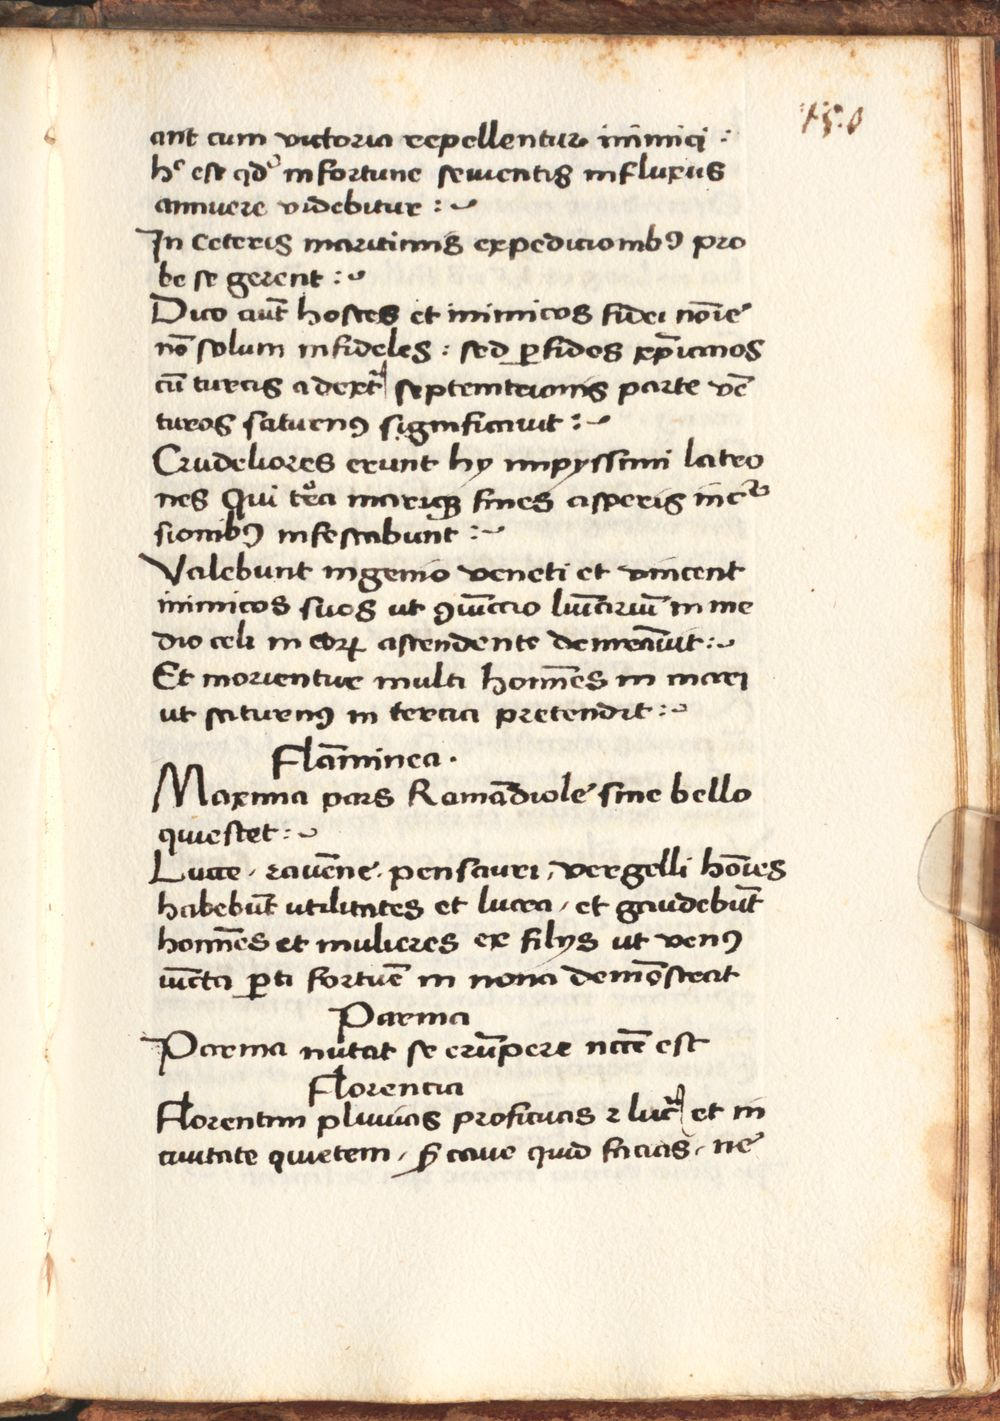 150
ant cum victoria repellentur inimici :
hͨ est qđ infortune seuientis influxus
annuere videbitur :~
In ceteris maritimis expedicionibꝰ pro
be se gerent :~
Dico aut̄ hostes et inimicos fidei noīe
nō solum infideles : sed ꝑfidos xp̄ianos
cū turcis a dextᵃ septemtrionis parte vē
turos saturnꝰ significauit :~
Crudeliores erunt hy impyssimi latro
nes Qui tr̄a mariqꝫ fines asperis incᵘʳ
sionibꝰ infestabunt :~
Valebunt ingenio veneti et vincent
inimicos suos ut ꝯiūctio lūiariū in me
dio celi in eoꝝ ascendente
Et morientur multi hoīnes in mari
ut saturnꝰ in tercia pretendit :~
Flāminea .
Maxima pars Romādiole sine bello
quiescet :~
Lucce , rauēne , pensauri , vergelli hoīes
habebūt utilitates et lucra , et gaudebūt
hoīnes et mulieres ex filijs ut venꝰ
iūcta ꝑti fortūe in nona demōstrat
Parma
Parma nutat se erūpere ncc̄e est
Florencia
Florentini pluuias proficuas ⁊ lucᵃ et in
ciuitate quietem , s̄ caue quid facias , ne